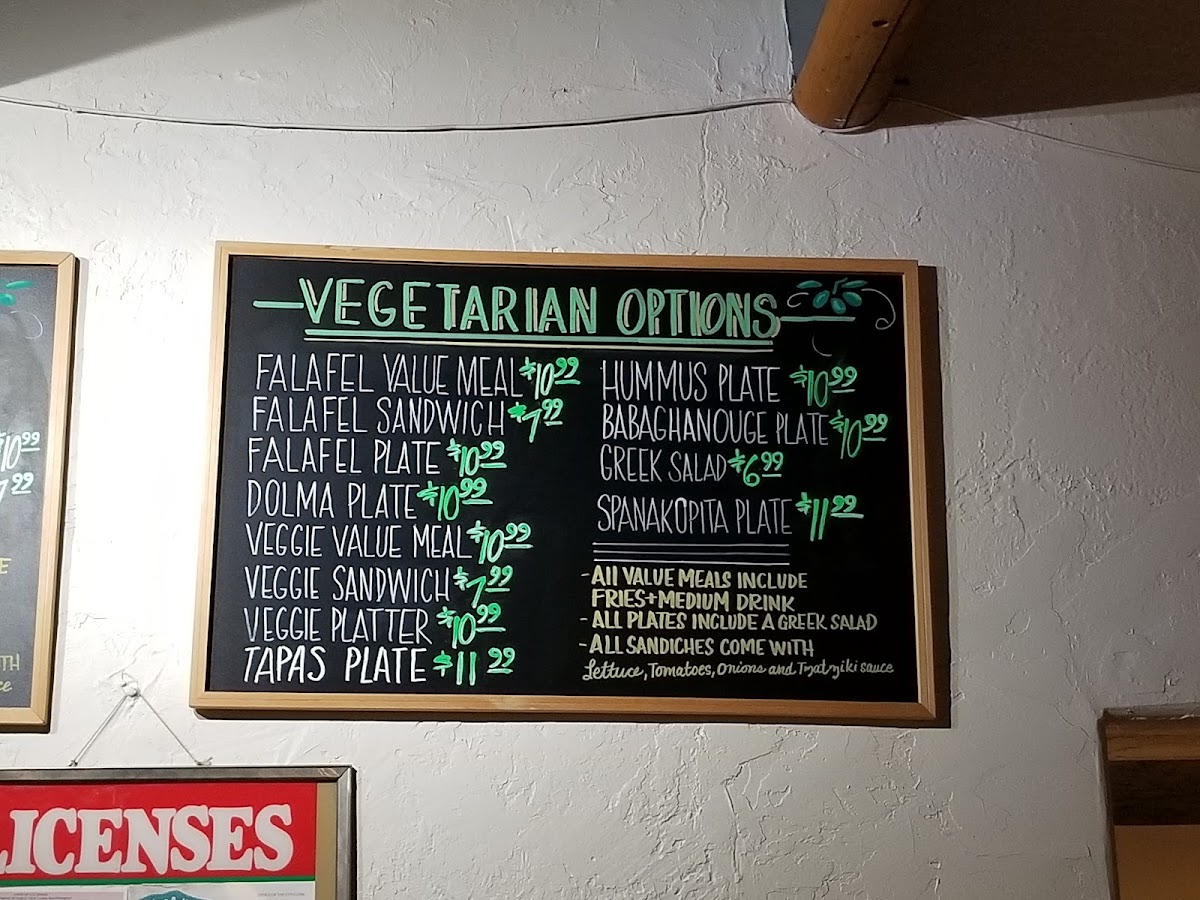 VEGETARIAN OPTIONS
FALAFEL VALUE MEAL $10.99
FALAFEL SANDWICH $7.99
FALAFEL PLATE $10.99
DOLMA PLATE $10.99
VEGGIE VALUE MEAL $10.99
VEGGIE SANDWICH $7.99
VEGGIE PLATTER $10.99
TAPAS PLATE $11.99
HUMMUS PLATE $10.99
BABAGHANOUGE PLATE $10.99
GREEK SALAD $6.99
SPANAKOPITA PLATE $11.99
- All VALUE MEALS INCLUDE
FRIES + MEDIUM DRINK
- ALL PLATES INCLUDE A GREEK SALAD
- ALL SANDICHES COME WITH
Lettuce, Tomatoes, Onions and Tzatziki sauce
$10.99
7.99
LICENSES